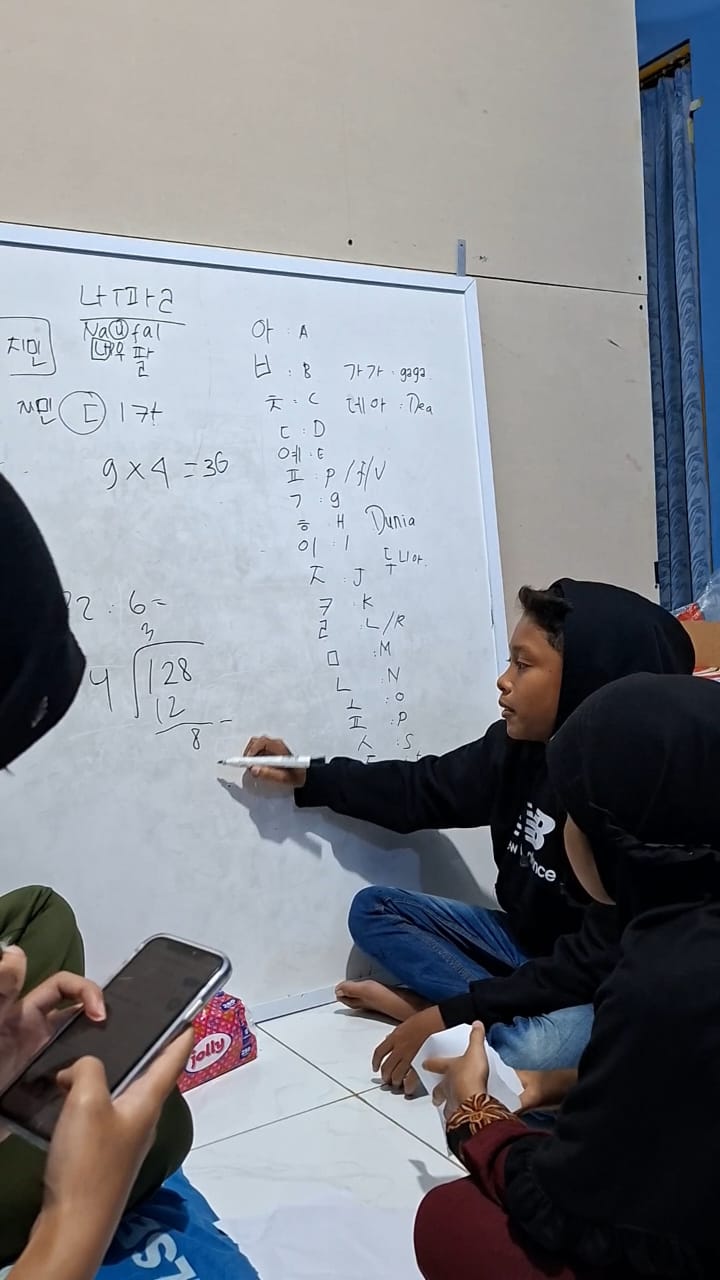 나ㅜ파ㄹ
Naufal
나우팔
지민
지민 ㄷ 17t
9 x 4 = 36
2 : 6 =
3
4 128
12
8
아 : A
ㅂ : B
ㅊ : C
ㄷ : D
에 : E
ㅍ : P / f / V
ㄱ : g
ㅎ : H
이 : I
ㅈ : J
ㅋ : K
ㄹ : L/R
ㅁ : M
ㄴ : N
ㅗ : O
ㅍ : P
ㅅ : S
가가 : gaga
데아 : Dea
Dunia
두니아
jolly
NB